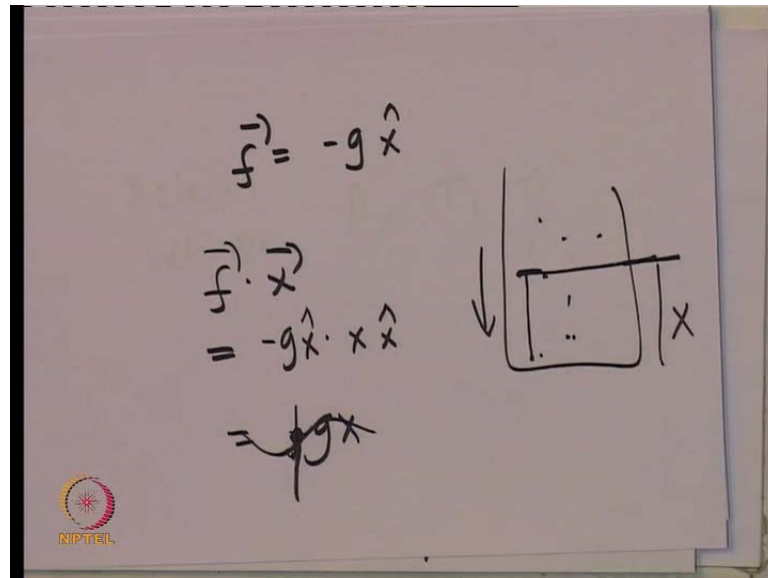 f⃗ = -g x̂
f⃗ · x⃗
= -g x̂ · x x̂
= gx
x
NPTEL